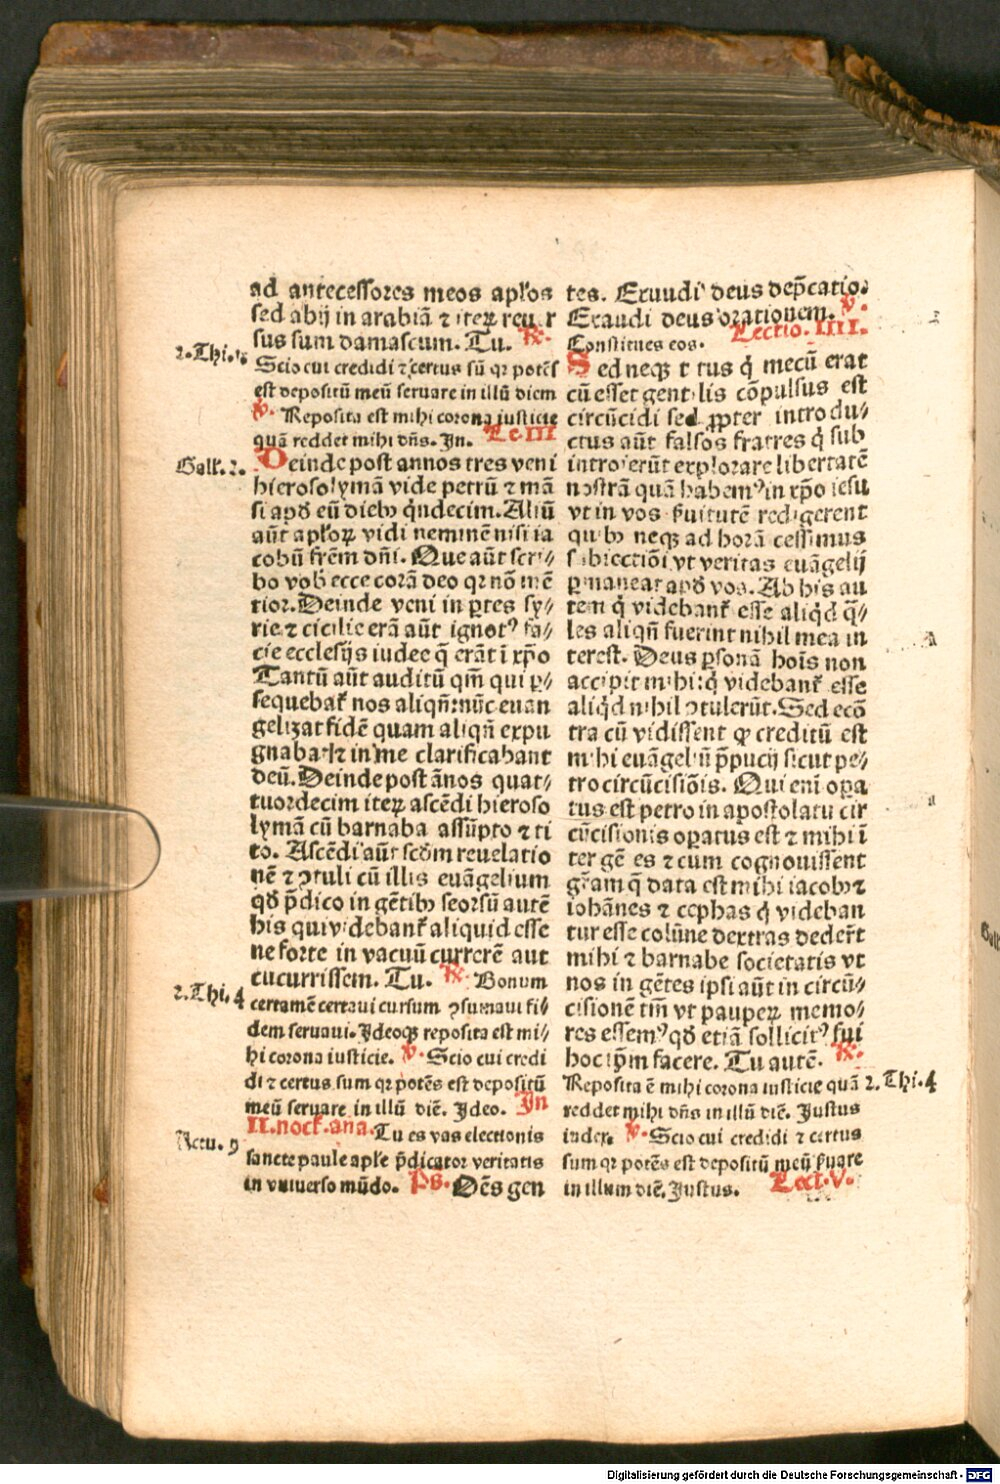 ad antecessores meos apl'os
sed abij in arabiā ⁊ iteꝝ reu r
sus sum damascum. Tu. ℟.
2. Thi. 1.
Scio cui credidi ⁊ certus sū qꝛ potēs
est depositū meū seruare in illū diem
℣. Reposita est mihi corona iusticie
quā reddet mihi dn̄s. Jn. Le. III
Gall. 2.
Deinde post annos tres veni
hierosolymā vide petrū ⁊ mā
si apđ eū diebꝫ q̇ndecim. Aliū
aūt apl'oꝝ vidi neminē nisi ia
cobū frēm dn̄i. Que aūt scri⸗
bo vob ecce corā deo qꝛ nō mē
tior. Deinde veni in ꝑtes sy⸗
rie ⁊ cicilie erā aūt ignotꝰ fa⸗
cie ecclesijs iudee q̄ erāt ī xp̄o
Tantū aūt auditū qm̄ qui ꝑ⸗
sequebat̄ nos aliqn̄: nūc euan
gelizat fidē quam aliqn̄ expu
gnabat ⁊ in me clarificabant
deū. Deinde post ānos quat⸗
tuordecim iteꝝ ascēdi hieroso
lymā cū barnaba assūpto ⁊ ti
to. Ascēdi aūt scđm reuelatio
nē ⁊ ꝯtuli cū illis euāgelium
qđ p̄dico in gētibꝫ seorsū autē
his qui videbant̄ aliquid esse
ne forte in vacuū currerē aut
cucurrissem. Tu. ℟. Bonum
2. Thi. 4
certamē certaui cursum ꝯsumaui fi⸗
dem seruaui. Jdeoqꝫ reposita est mi⸗
hi corona iusticie. ℣. Scio cui credi
di ⁊ certus sum qꝛ potēs est depositū
meū seruare in illū diē. Jdeo. Jn
II. noct̄. ana. Tu es vas electionis
Actu. 9
sancte paule apl'e p̄dicator veritatis
in vniuerso mūdo. Ps. Oēs gen
tes. Exaudi deus dep̄catio.
Exaudi deus orationem. ℣.
Constitues eos. Lectio. IIII.
Sed neqꝫ t tus q̇ mecū erat
cū esset gentilis cōpulsus est
circūcidi sed ꝓpter introdu⸗
ctus aūt falsos fratres q̇ sub
introierūt explorare libertatē
nostrā quā habemꝰ in xp̄o iesu
vt in vos ẜuitutē redigerent
quibꝫ neqꝫ ad horā cessimus
s biectiōi vt veritas euāgelij
ꝑmaneat apđ vos. Ab his au
tem q̇ videbant̄ esse aliq̇d q̄⸗
les aliqn̄ fuerint nihil mea in
terest. Deus ꝑsonā hoīs non
accipit mihi: q̇ videbant̄ esse
aliq̇d nihil ꝯtulerūt. Sed ecō
tra cū vidissent ꝙ creditū est
mihi euāgeliū p̄pucij sicut pe⸗
tro circūcisiōis. Qui eni oꝑa
tus est petro in apostolatu cir
cūcisionis oꝑatus est ⁊ mihi ī
ter gē es ⁊ cum cognouissent
gr̄am q̄ data est mihi iacobꝰ ⁊
iohānes ⁊ cephas q̇ videban
tur esse colūne dextras dedert̄
mihi ⁊ barnabe societatis vt
nos in gētes ipsi aūt in circū⸗
cisionē tm̄ vt paupeꝝ memo⸗
res essemꝰ qđ etiā sollicitꝰ fui
hoc ip̄m facere. Tu autē. ℟.
Reposita ē mihi corona iusticie quā
2. Thi. 4
reddet mihi dn̄s in illū diē. Justus
iudex. ℣. Scio cui credidi ⁊ certus
sum qꝛ potēs est depositū meū ẜuare
in illum diē. Justus. Lect. V.
Digitalisierung gefördert durch die Deutsche Forschungsgemeinschaft - DFG